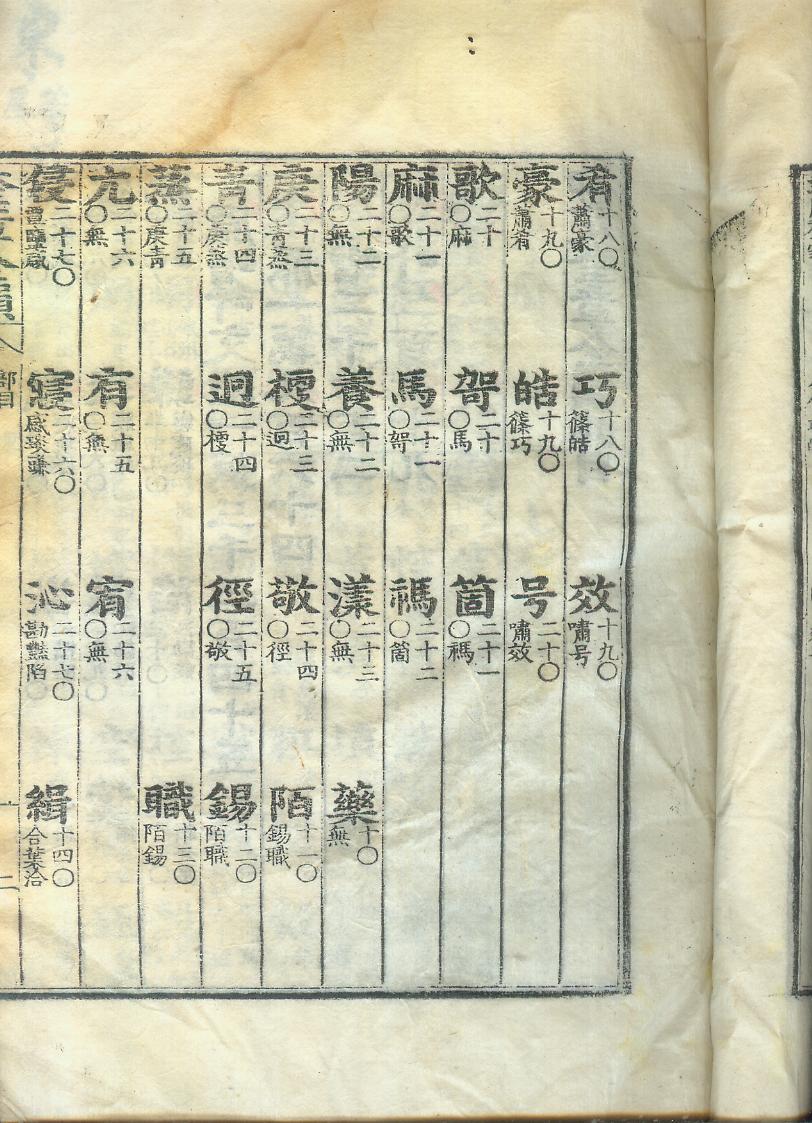 肴十八〇蕭豪 巧十八〇篠皓 效十九〇嘯号
豪十九〇蕭肴 皓十九〇篠巧 号二十〇嘯效
歌二十〇麻 哿二十〇馬 箇二十一〇禡
麻二十一〇歌 馬二十一〇哿 禡二十二〇箇
陽二十二〇無 養二十二〇無 漾二十三〇無 藥十〇無
庚二十三〇青蒸 梗二十三〇迥 敬二十四〇徑 陌十一〇錫職
青二十四〇庚蒸 迥二十四〇梗 徑二十五〇敬 錫十二〇陌職
蒸二十五〇庚青 職十三〇陌錫
尤二十六〇無 有二十五〇無 宥二十六〇無
侵二十七〇覃鹽咸 寢二十六〇感琰豏 沁二十七〇勘豔陷 緝十四〇合葉洽
部目